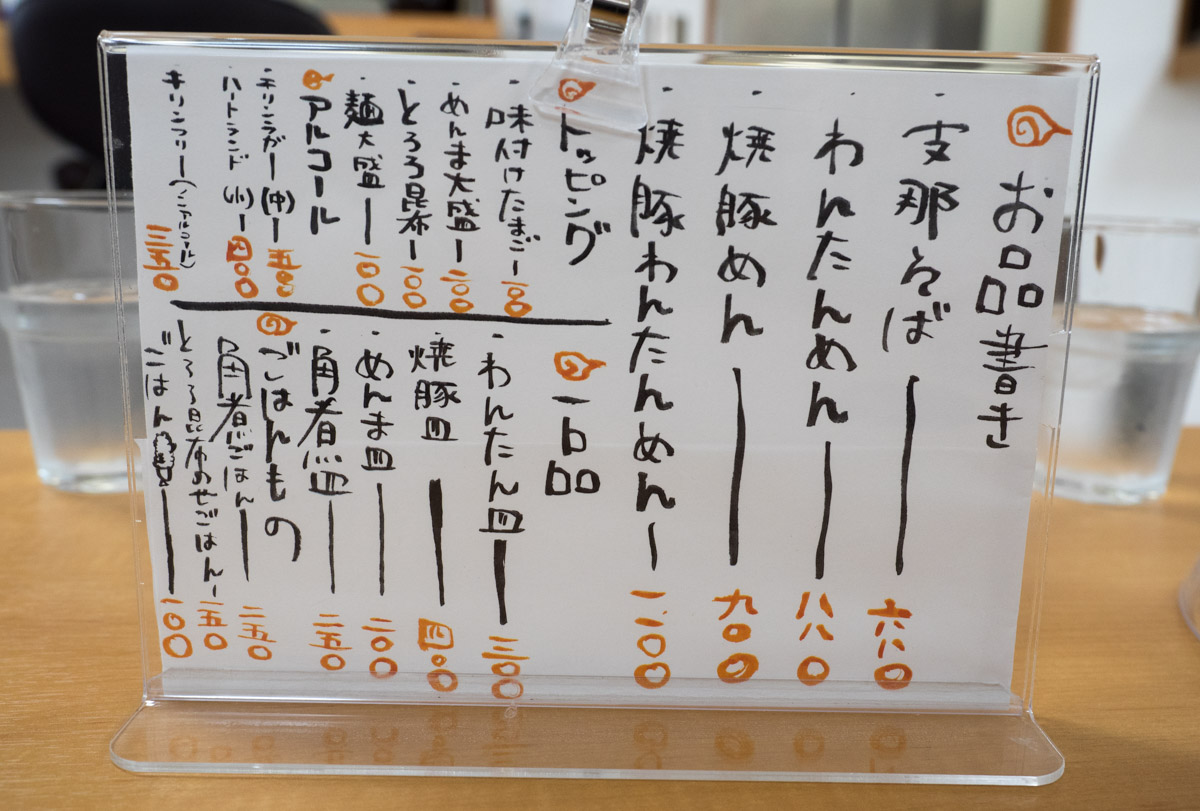 お品書き
・支那そば ー 六八〇
・わんたんめん ー 八八〇
・焼豚めん ー 九〇〇
・焼豚わんたんめん ー 一、一〇〇
トッピング
・味付けたまごー一〇〇
・めんま大盛ー一〇〇
・とろろ昆布ー一〇〇
・麺大盛ー一〇〇
アルコール
・キリンラガー(中)ー五〇〇
・ハートランド(小)ー四〇〇
・キリンフリー(ノンアルコール) 三五〇
一品
・わんたん皿ー三〇〇
・焼豚皿ー四〇〇
・めんま皿ー二〇〇
・角煮皿ー二五〇
ごはんもの
・角煮ごはんー二五〇
・とろろ昆布のせごはんー一五〇
・ごはんー一〇〇